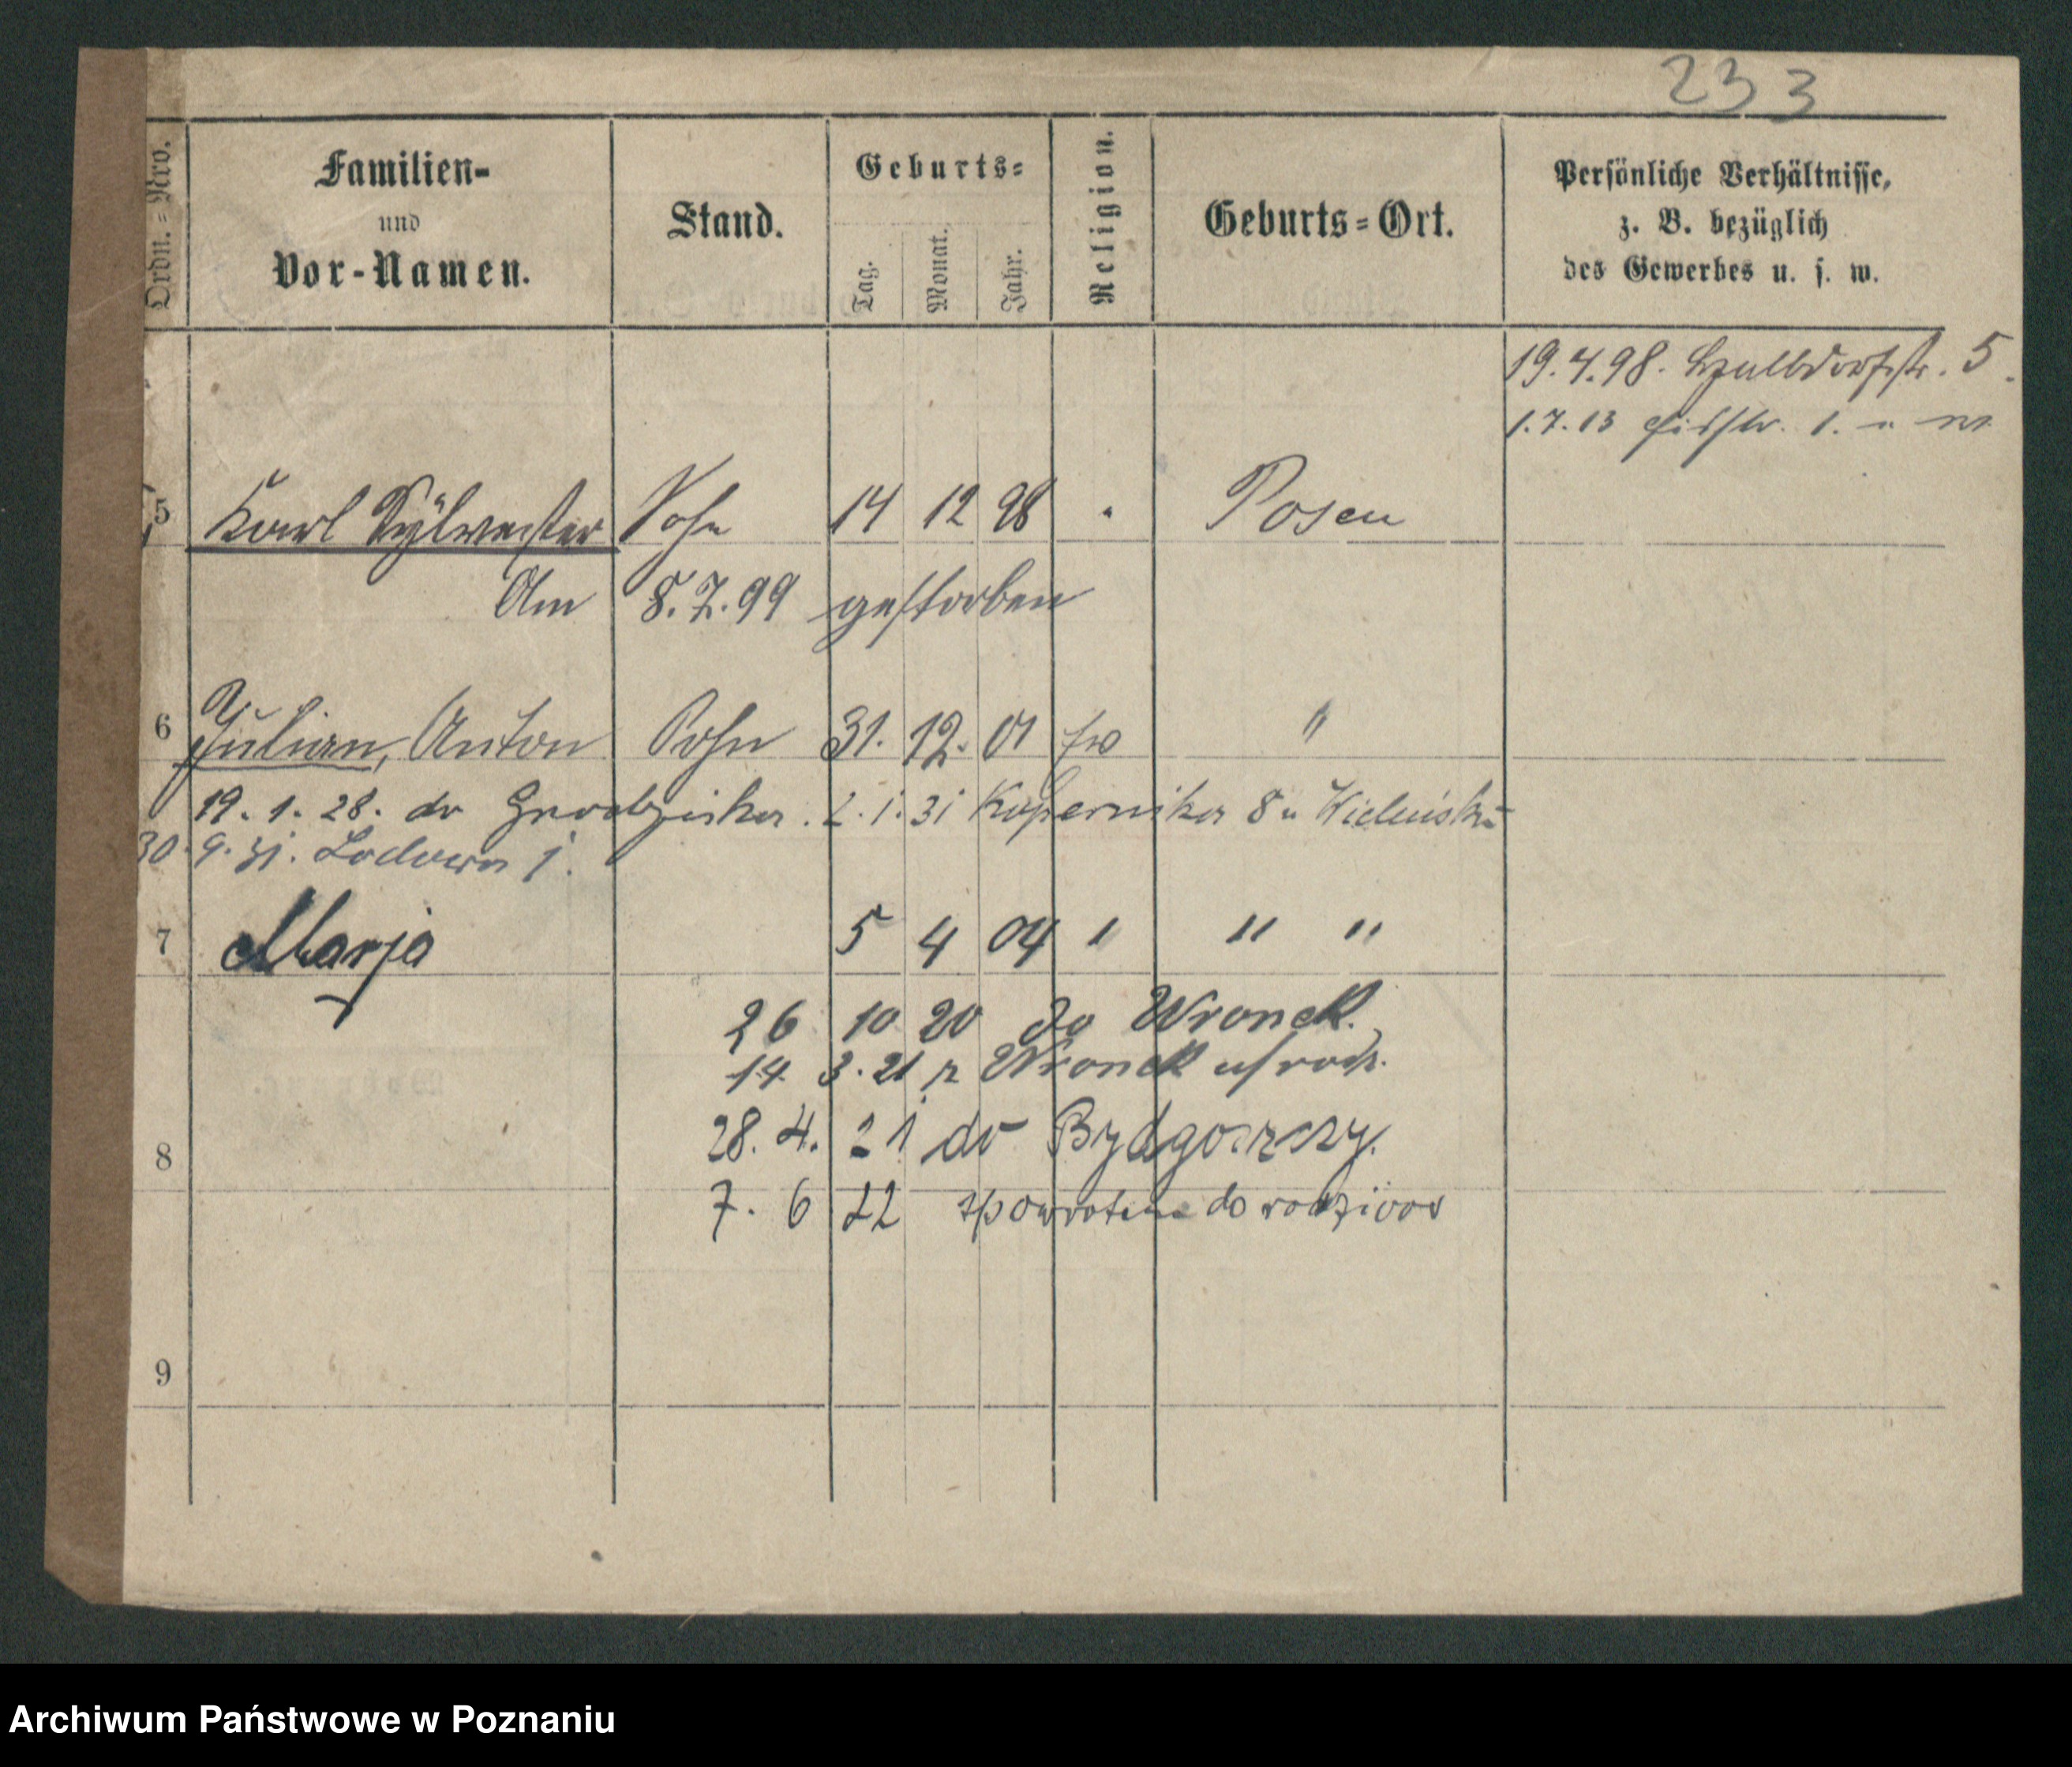 233
Ordn.=Nro.
Familien-
und
Vor-Namen.
Stand.
Geburts=
Tag.
Monat.
Jahr.
Religion.
Geburts=Ort.
Persönliche Verhältnisse,
z. B. bezüglich
des Gewerbes u. s. w.
19.4.98. 5.
1.7.13 1.
5 Karl Sylvester Sohn 14 12 98 " Posen
Am 8.7.99 gestorben
6 Julian, Anton Sohn 31. 12. 01 "
19.1.28. do Grodziska. 2.1.31 Kopernika 8 u
30.9.31. 1.
7 Marja 5 4 04 " " "
26 10 20 do Wronek.
14 3.21 z Wronek
28.4.21 do Bydgoszczy.
7. 6 22 zpowrotem do rodziców
8
9
Archiwum Państwowe w Poznaniu